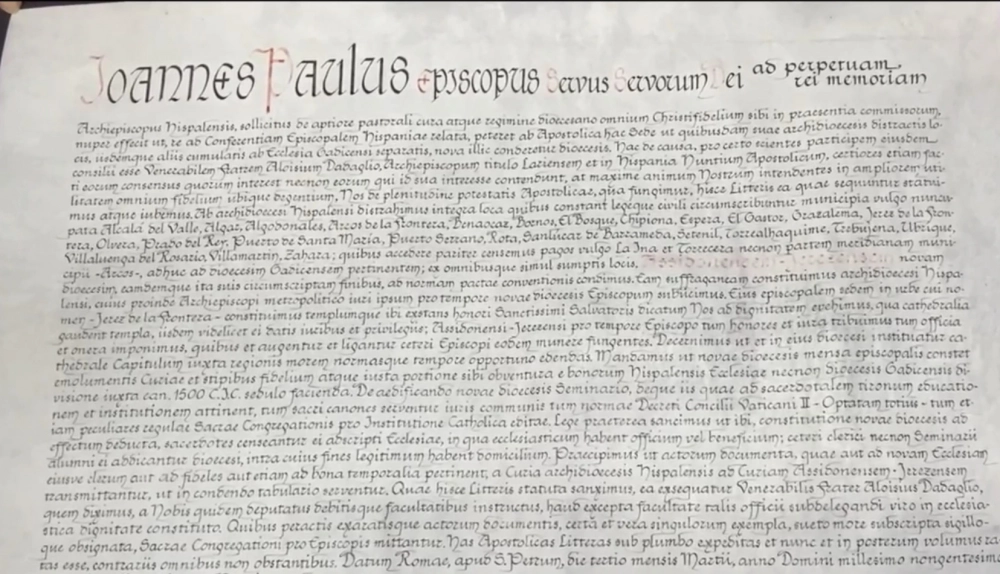 Ioannes Paulus Episcopus Servus Servorum Dei ad perpetuam rei memoriam
Archiepiscopus Hispalensis, sollicitus de aptiore pastorali cura atque regimine dioecesano omnium Christifidelium sibi in praesentia commissorum,
nuper effecit ut, re ad Conferentiam Episcopalem Hispaniae relata, peteret ab Apostolica hac Sede ut quibusdam suae archidioecesis distractis lo-
cis, iisdemque aliis cumulatis ab Ecclesia Gadicensi separatis, nova illic conderetur dioecesis. Hac de causa, pro certo scientes participem eiusdem
consilii esse Venerabilem Fratrem Aloisium Dadaglio, Archiepiscopum titulo Lariensem et in Hispania Nuntium Apostolicum, certiores etiam fac-
ti eorum consensus quorum interest necnon eorum qui id sua interesse contendunt, at maxime animum Nostrum intendentes in ampliorem uti-
litatem omnium fidelium ubique degentium, Nos de plenitudine potestatis Apostolicae, qua fungimur, hisce Litteris ea quae sequuntur statui-
mus atque iubemus. Ab archidioecesi Hispalensi distrahimus integra loca quibus constant legeque civili circumscribuntur municipia vulgo nuncu-
pata Alcalá del Valle, Algar, Algodonales, Arcos de la Frontera, Benaocaz, Bornos, El Bosque, Chipiona, Espera, El Gastor, Grazalema, Jerez de la Fron-
tera, Olvera, Prado del Rey, Puerto de Santa María, Puerto Serrano, Rota, Sanlucar de Barrameda, Setenil, Torrealhaquime, Trebujena, Ubrique,
Villaluenga del Rosario, Villamartin, Zahara; quibus accedere pariter censemus pagos vulgo La Ina et Torrecera necnon partem meridianam muni-
cipii -Arcos-, adhuc ad dioecesim Gadicensem pertinentem; ex omnibusque simul sumptis locis, Assidonensem-Jerezensem novam
dioecesim, eamdemque ita suis circumscriptam finibus, ad normam pactae conventionis condimus. Eam suffraganeam constituimus archidioecesi Hispa-
lensi, cuius proinde Archiepiscopi metropolitico iuri ipsum pro tempore novae dioecesis Episcopum subiicimus. Eius episcopalem sedem in urbe cui no-
men -Jerez de la Frontera- constituimus templumque ibi exstans honori Sanctissimi Salvatoris dicatum Nos ad dignitatem evehimus, qua cathedralia
gaudent templa, iisdem videlicet ei datis iuribus et privilegiis; Assidonensi-Jerezensi pro tempore Episcopo tum honores et iura tribuimus tum officia
et onera imponimus, quibus et augentur et ligantur ceteri Episcopi eodem munere fungentes. Decernimus ut et in eius dioecesi instituatur ca-
thedrale Capitulum iuxta regionis morem normasque tempore opportuno edendas. Mandamus ut novae dioecesis mensa episcopalis constet
emolumentis Curiae et stipibus fidelium atque iusta portione sibi obventura e bonorum Hispalensis Ecclesiae necnon dioecesis Gadicensis di-
visione iuxta can. 1500 C.I.C. sedulo facienda. De aedificando novae dioecesis Seminario, deque iis quae ad sacerdotalem tironum educatio-
nem et institutionem attinent, tum sacri canones serventur iuris communis tum normae Decreti Concilii Vaticani II -Optatam totius- tum et-
iam peculiares regulae Sacrae Congregationis pro Institutione Catholica editae. Lege praeterea sancimus ut ibi, constitutione novae dioecesis ad
effectum deducta, sacerdotes censeantur ei adscripti Ecclesiae, in qua ecclesiasticum habent officium vel beneficium; ceteri clerici necnon Seminarii
alumni ei addicantur dioecesi, intra cuius fines legitimum habent domicilium. Praecipimus ut actorum documenta, quae aut ad novam Ecclesiam
eiusve clerum aut ad fideles aut etiam ad bona temporalia pertinent, a Curia archidioecesis Hispalensis ad Curiam Assidonensem-Jerezensem
transmittantur, ut in condendo tabulario serventur. Quae hisce Litteris statuta sanximus, ea exsequatur Venerabilis Frater Aloisius Dadaglio,
quem diximus, a Nobis quidem deputatus debitisque facultatibus instructus, haud excepta facultate talis officii subdelegandi viro in ecclesia-
stica dignitate constituto. Quibus peractis exaratisque actorum documentis, certa et vera singulorum exempla, sueto more subscripta sigillo-
que obsignata, Sacrae Congregationi pro Episcopis mittantur. Has Apostolicas Litteras sub plumbo expeditas et nunc et in posterum volumus ra-
tas esse, contrariis omnibus non obstantibus. Datum Romae, apud S. Petrum, die tertio mensis Martii, anno Domini millesimo nongentesimo